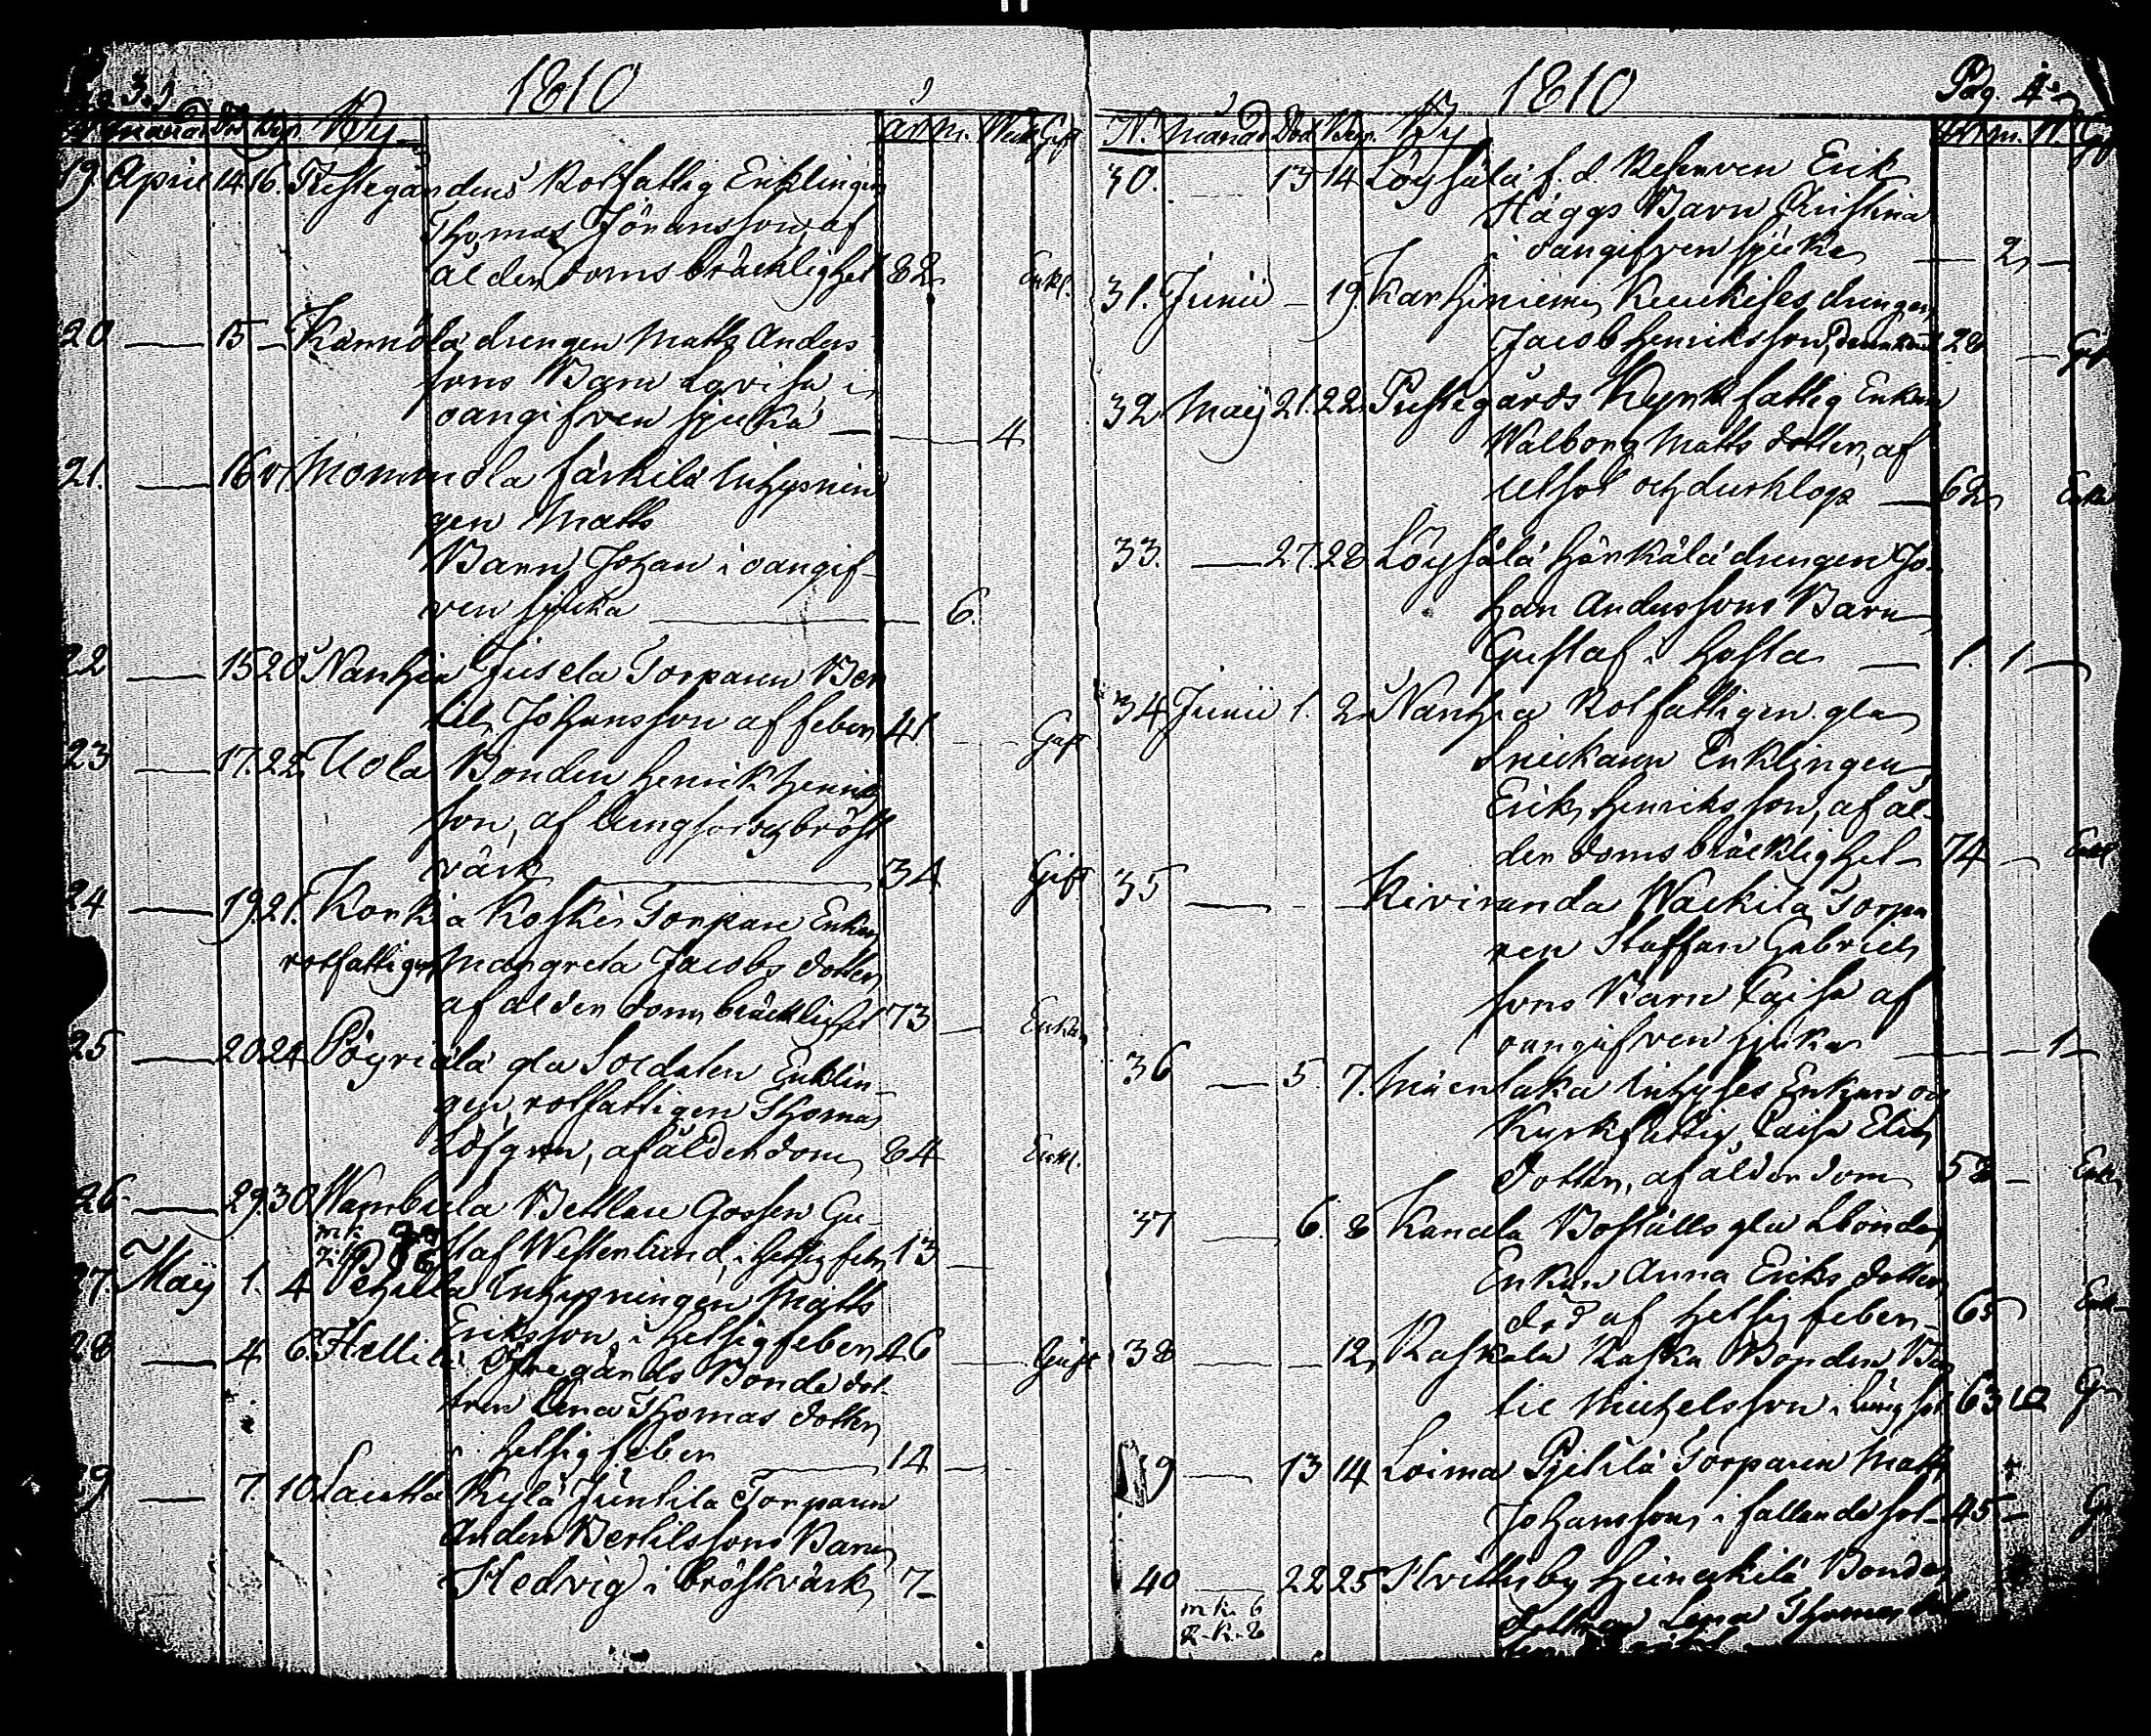 3.
1810
Månad Död Begr. By
år m. Veck Gift
19. April 14. 16. Prestegårdens Rotfattig Enklingen
Thomas Jöransson, af
ålderdoms bräcklighet 82 Enkl.
20 — 15 — Kännölä drengen Matts Anders
sons Barn Lovisa, i
oangifven sjuka — — 4
21. — 16 Mommola Färkilä Inhysnin
gen Matts
Barn Johan i oangif
ven sjuka — — 6.
22 — 15 20 Nanhia Jusela Torparen Ber
til Johansson af feber 41 Gift
23 — 17. 22. Uola Bonden Henrik Henriks
son, af lungsot och bröst
värk — 34 Gift.
24 — 19. 21. Korkia Koskis Torpare Enkan
rotfattig Margreta Jacobs dotter
af alderdoms bräcklighet 73 — Enkan
25 — 20. 24 Pöyriälä gla Soldaten Enklin-
gen, rotfattigen Thomas
Löfgren, af ålderdom 84 Enkl.
26. — 29. 30 Wambula Bettlare Gossen Gu-
staf Westerlund, i hetsig feber 13 —
27. Maij 1. 4 Pehula Inhysningen Matts
Eriksson, i hetsig feber 46 — Gift
28 — 4. 6. Hellilä Öfregårds Bonde dot-
tren Lena Thomas dotter
i hetsig feber — 14 —
29 — 7. 10. Lautta Kylä Juntila Torparen
Anders Bertilssons Barn
Hedvig i bröstvärk 7 —
1810
Pag. 4
N. Månad Död Begr. By
30. — 13 14 Löysälä f. d. Reserven Erik
Häggs Barn Kristina
i oangifven sjuka — 2 —
31. Junii — 19. Karhiniemi Kuukises drengen
Jacob Henriksson, 28 — Gift
32. Maij 21. 22. Prestegårds Kyrkfattig Enkan
Walborg Matts dotter, af
utsot och durklop — 62 Enka
33. — 27. 28 Löysälä Härkälä drengen Jo-
han Anderssons Barn
Gustaf i hosta — 1. 1 —
34 Junii 1. 2 Nanhia Rotfattigen gla
Snickaren Enklingen
Erik Henriksson, af ål-
derdoms bräcklighet — 74 — Enkl.
35 — — — Kiviranda Wäckilä Torpa
ren Staffan Gabriels
sons Barn Caisa af
oangifven sjuka — — 1 —
36 — 5. 7. Mäenlaka Inhyses Enkan och
Kyrkfattig, Caisa Elias
dotter, af ålderdom 58 — Enka
37 — 6. 8 Kanala Boställs gla Lbonde
Enkan Anna Eriks dotter
död af hetsig feber — 65 Enk.
38 — — 12. Raskala Raska Bonden Ber
til Michelsson i lungsot 63 10
39 — 13 14 Loima Pjetilä Torparen Matts
Johansson, i fallande sot — 45 —
40 — 22 25 Hvittisby Heinikilä Bonde
dottren Lena Thomas
m. k. 6
q. k. 8